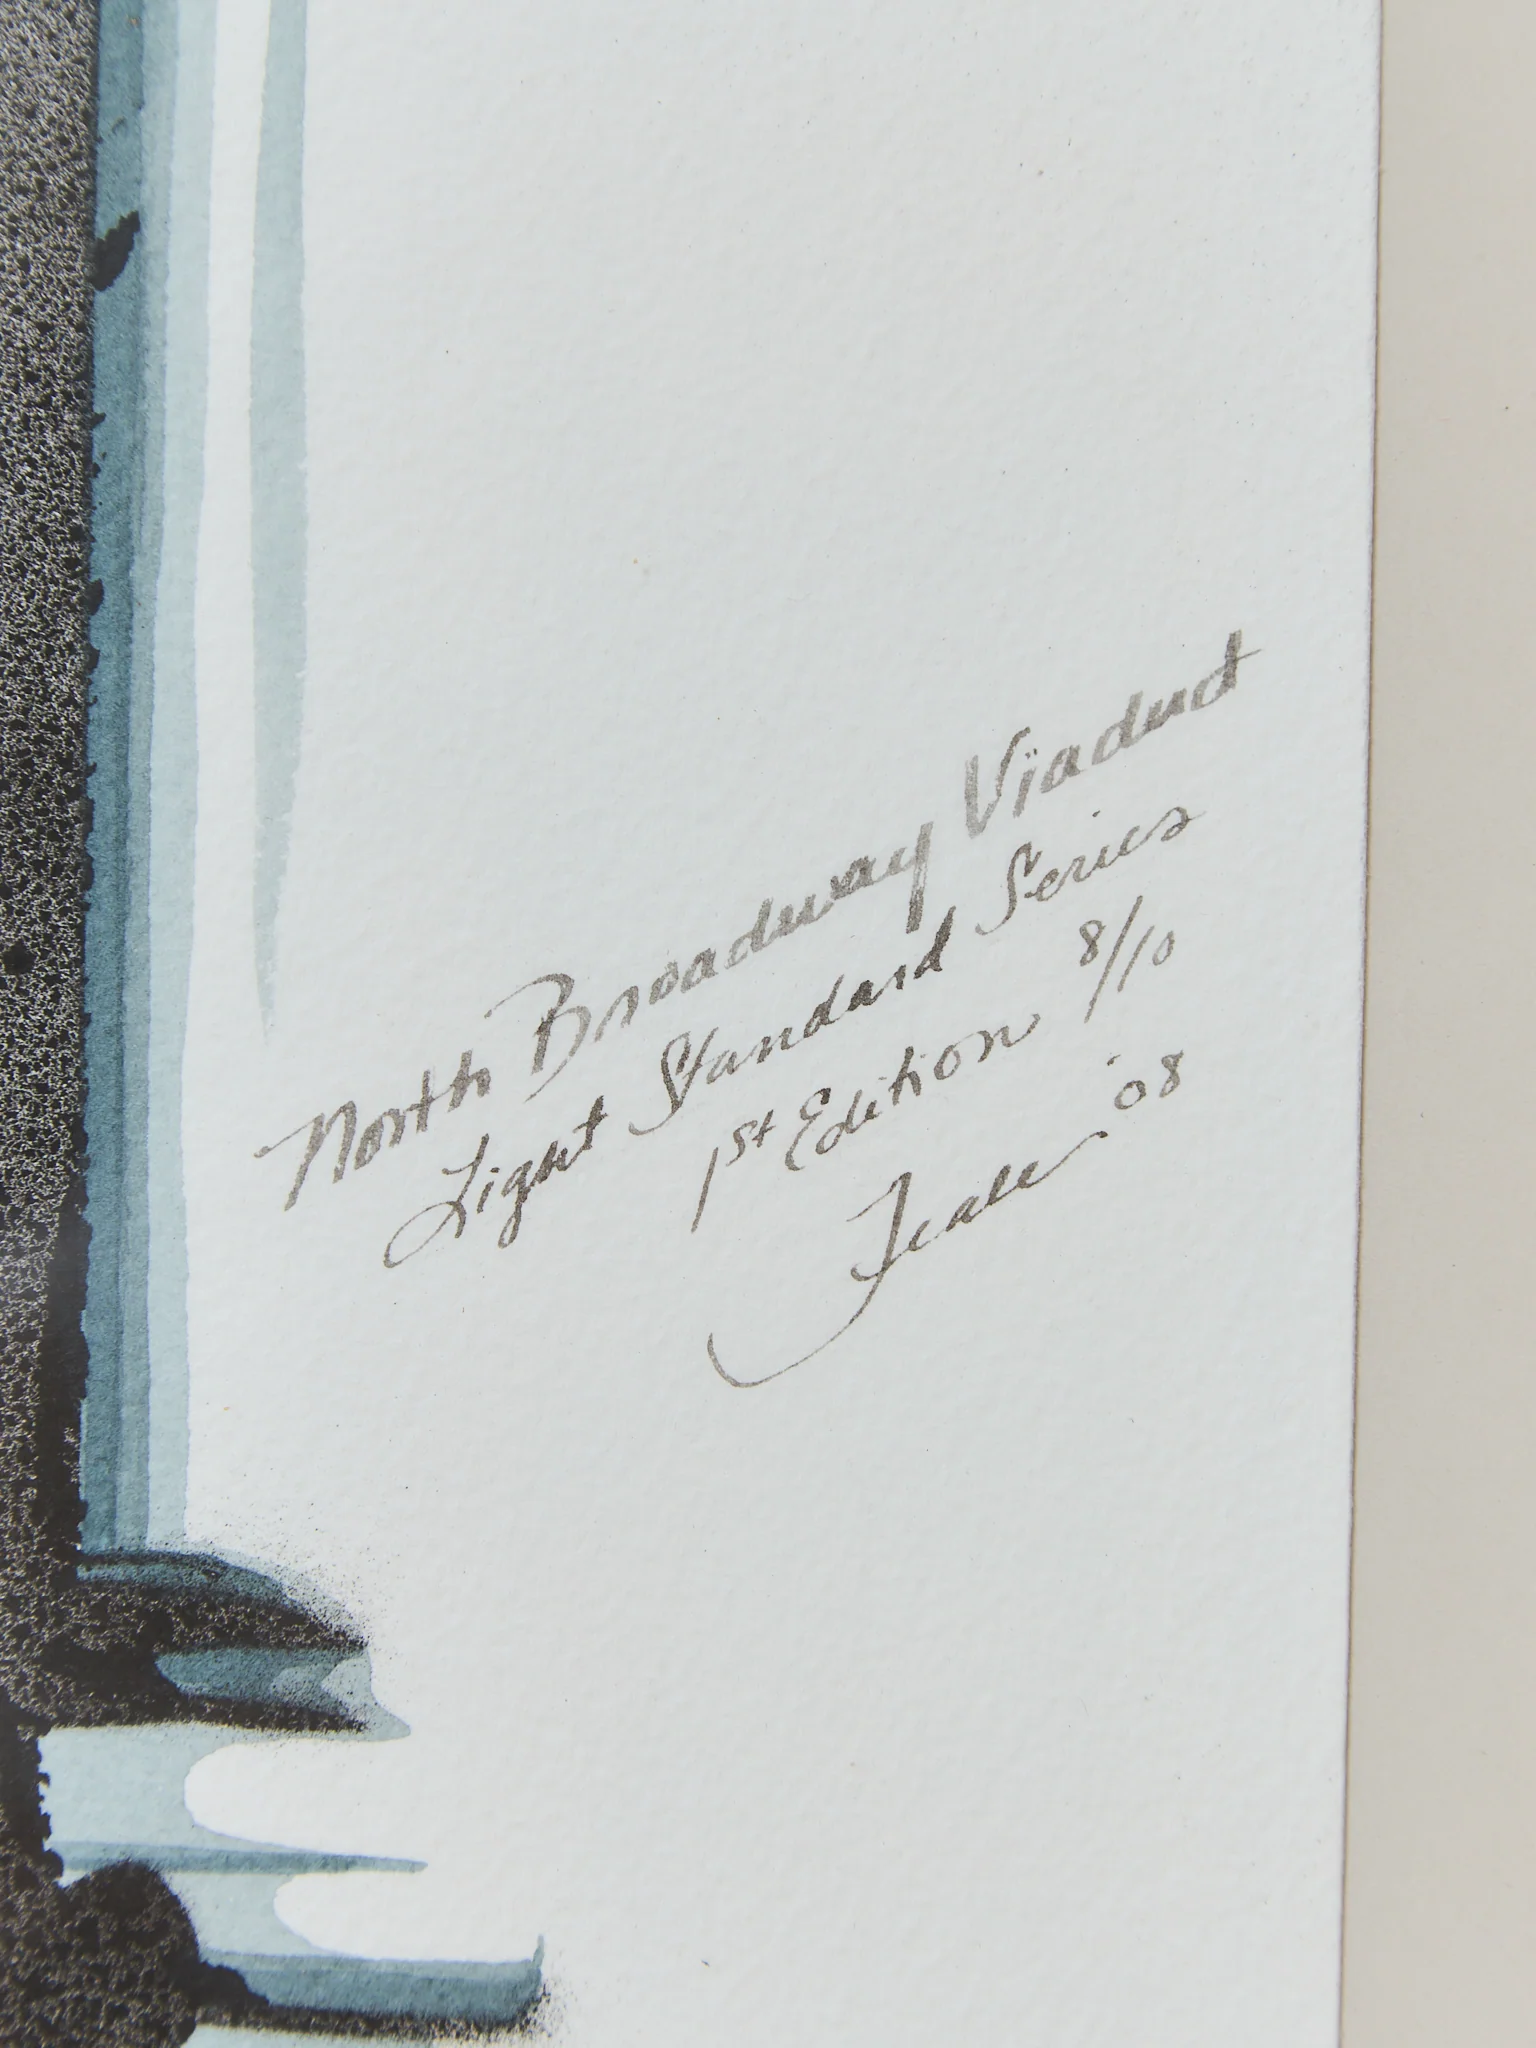 North Broadway Viaduct
Light Standard Series
1st Edition 8/10
'08